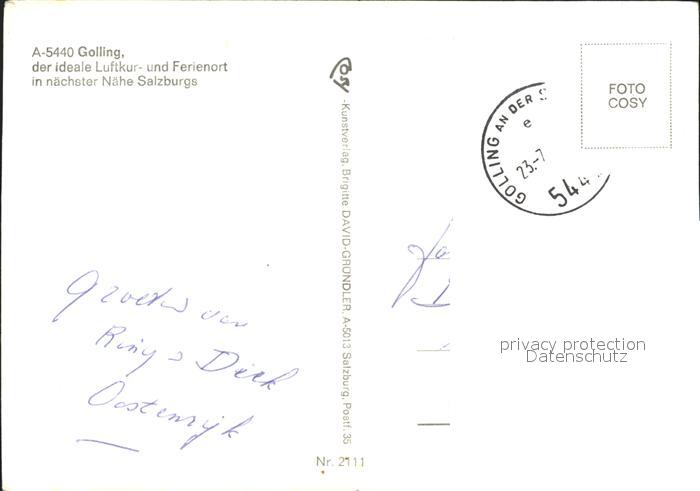 A-5440 Golling,
der ideale Luftkur- und Ferienort
in nächster Nähe Salzburgs
cosy
-Kunstverlag, Brigitte DAVID-GRUNDLER, A-5013 Salzburg, Postf. 35
Nr. 2111
FOTO
COSY
GOLLING AN DER S
e
23.-7
544
privacy protection
Datenschutz
Groeten van
Dick
Oostenrijk